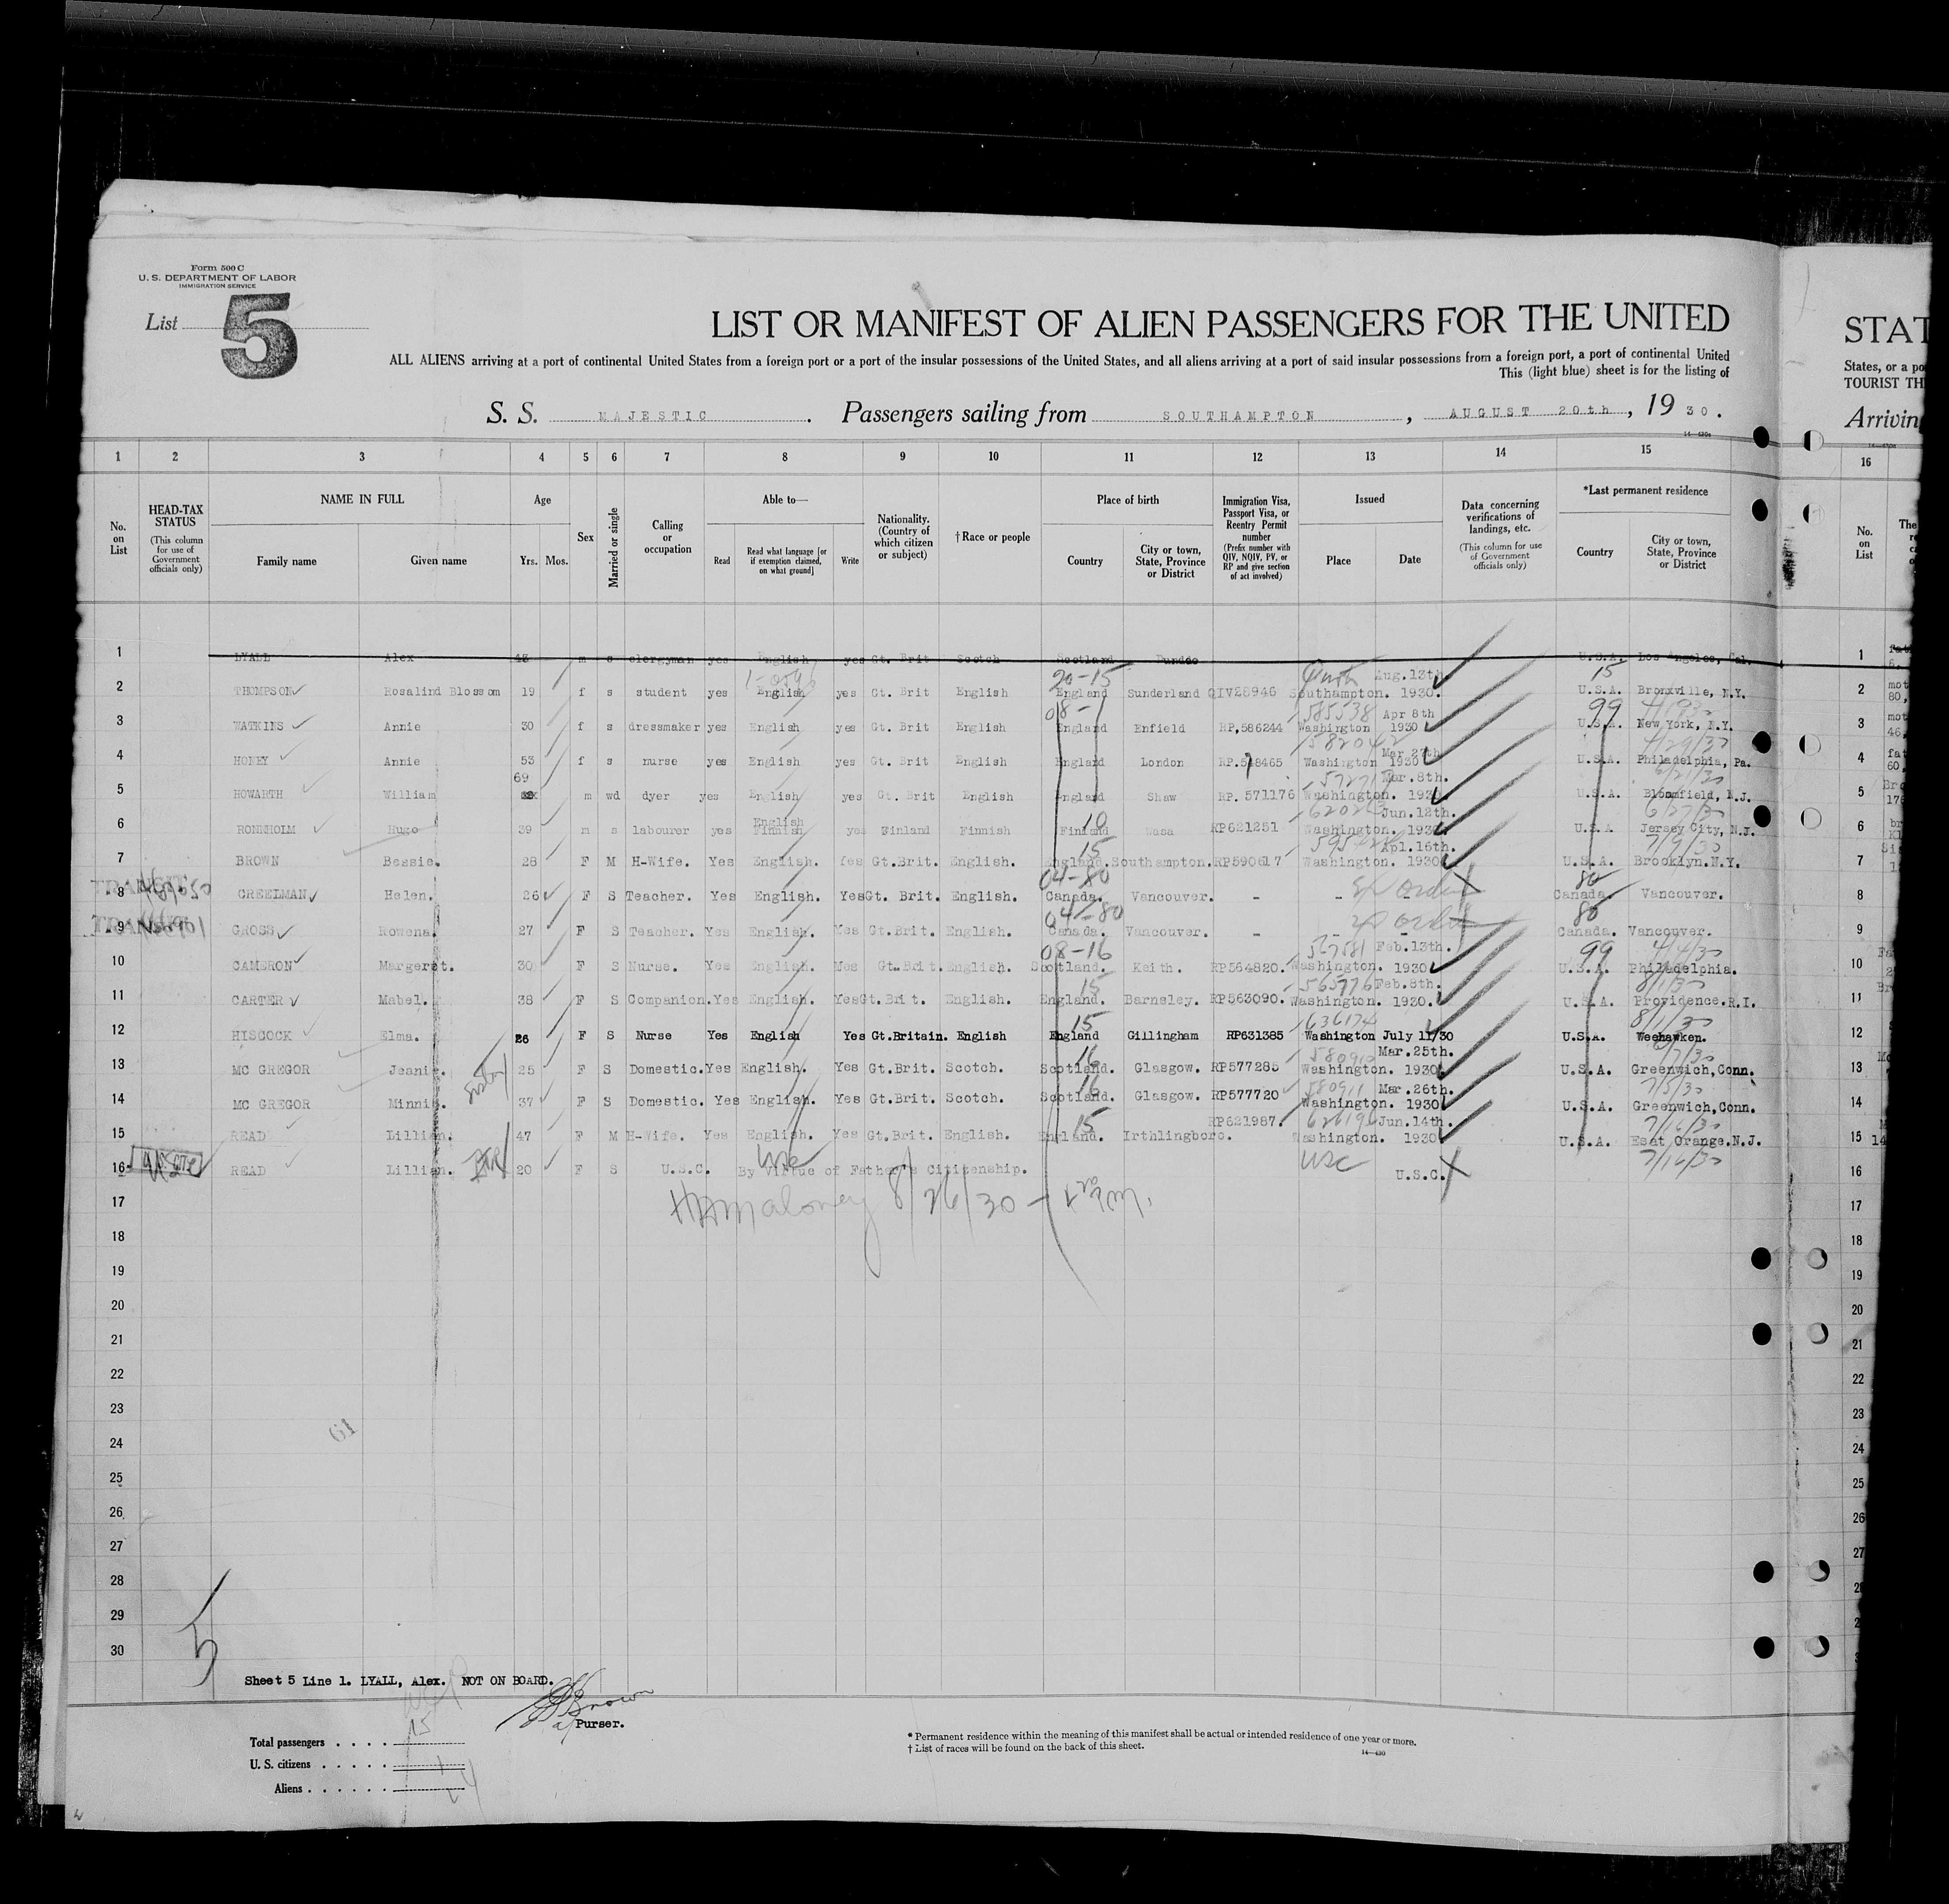 Form 500 C
U. S. DEPARTMENT OF LABOR
IMMIGRATION SERVICE
List 5
LIST OR MANIFEST OF ALIEN PASSENGERS FOR THE UNITED
STAT
ALL ALIENS arriving at a port of continental United States from a foreign port or a port of the insular possessions of the United States, and all aliens arriving at a port of said insular possessions from a foreign port, a port of continental United
States, or a po
This (light blue) sheet is for the listing of
TOURIST TH
S. S. MAJESTIC. Passengers sailing from SOUTHAMPTON, AUGUST 20th, 1930.
Arrivin
1 2 3 4 5 6 7 8 9 10 11 12 13 14 15 16
No. on List
HEAD-TAX STATUS (This column for use of Government officials only)
NAME IN FULL Family name Given name
Age Yrs. Mos.
Sex
Married or single
Calling or occupation
Able to— Read Read what language [or if exemption claimed, on what ground] Write
Nationality. (Country of which citizen or subject)
† Race or people
Place of birth Country City or town, State, Province or District
Immigration Visa, Passport Visa, or Reentry Permit number (Prefix number with QIV, NQIV, PV, or RP and give section of act involved)
Issued Place Date
Data concerning verifications of landings, etc. (This column for use of Government officials only)
*Last permanent residence Country City or town, State, Province or District
No. on List
1 LYALL Alex 43 m s clergyman yes English yes Gt. Brit Scotch Scotland Dundee U.S.A. Los Angeles, Cal. 1
20-15 Aug.13th 15
2 THOMPSON Rosalind Blossom 19 f s student yes English yes Gt. Brit English England Sunderland QIV28946 Southampton. 1930. U.S.A. Bronxville, N.Y. 2
585538 Apr 8th 99
3 WATKINS Annie 30 f s dressmaker yes English yes Gt. Brit English England Enfield RP.586244 Washington 1930 U.S.A. New York, N.Y. 3
582042 Mar 27th 4/29/30
4 HONEY Annie 53 f s nurse yes English yes Gt. Brit English England London Washington 1930 U.S.A. Philadelphia, Pa. 4
69 Mar.8th.
5 HOWARTH William m wd dyer yes English yes Gt. Brit English England Shaw RP. 571176 Washington. 1930 U.S.A. Bloomfield, N.J. 5
English 10 Jun.12th. 6/27/30
6 RONNHOLM Hugo 39 m s labourer yes Finnish yes Finland Finnish Finland Wasa RP621251 Washington. 1930 U.S.A Jersey City, N.J. 6
15 Apl.16th. 7/9/30
7 BROWN Bessie. 28 F M H-Wife. Yes English. Yes Gt.Brit. English. England. Southampton. RP590617 Washington. 1930 U.S.A. Brooklyn.N.Y. 7
TRANSIT 04-80 80
8 CREELMAN Helen. 26 F S Teacher. Yes English. Yes Gt. Brit. English. Canada. Vancouver. - - - Canada. Vancouver. 8
TRANSIT 04-80 80
9 GROSS Rowena. 27 F S Teacher. Yes English. Yes Gt.Brit. English. Canada. Vancouver. - - Canada. Vancouver. 9
08-16 567581 Feb.13th. 99 4/4/30
10 CAMERON Margeret. 30 F S Nurse. Yes English. Yes Gt.Brit. English. Scotland. Keith. RP564820. Washington. 1930 U.S.A. Philadelphia. 10
15 565776 Feb.8th. 8/1/30
11 CARTER Mabel. 38 F S Companion. Yes English. Yes Gt.Brit. English. England. Barnsley. RP563090. Washington. 1930. U.S.A. Providence.R.I. 11
15 636174 8/1/30
12 HISCOCK Elma. 26 F S Nurse Yes English Yes Gt.Britain. English England Gillingham RP631385 Washington July 11/30 U.S.A. Weehawken. 12
16 Mar.25th.
13 MC GREGOR Jeanie. 25 F S Domestic. Yes English. Yes Gt.Brit. Scotch. Scotland. Glasgow. RP577285 Washington. 1930 U.S.A. Greenwich,Conn. 13
sister 16 580911 Mar.26th. 7/5/30
14 MC GREGOR Minnie. 37 F S Domestic. Yes English. Yes Gt.Brit. Scotch. Scotland. Glasgow. RP577720 Washington. 1930 U.S.A. Greenwich,Conn. 14
15 RP621987. 626196 Jun.14th. 7/16/30
15 READ Lillian. 47 F M H-Wife. Yes English. Yes Gt.Brit. English. England. Irthlingboro. Washington. 1930 U.S.A. Esat Orange.N.J. 15
USC USC 7/16/30
16 READ Lillian. 20 F S U.S.C. By Virtue of Father's Citizenship. U.S.C. 16
17 HAMaloney 8/26/30 17
18 18
19 19
20 20
21 21
22 22
23 23
24 61 24
25 25
26 26
27 27
28 28
29
30
5
Sheet 5 Line 1. LYALL, Alex. NOT ON BOARD.
Brown
Purser.
Total passengers 15
U. S. citizens 1
Aliens 14
* Permanent residence within the meaning of this manifest shall be actual or intended residence of one year or more.
† List of races will be found on the back of this sheet.
14—430